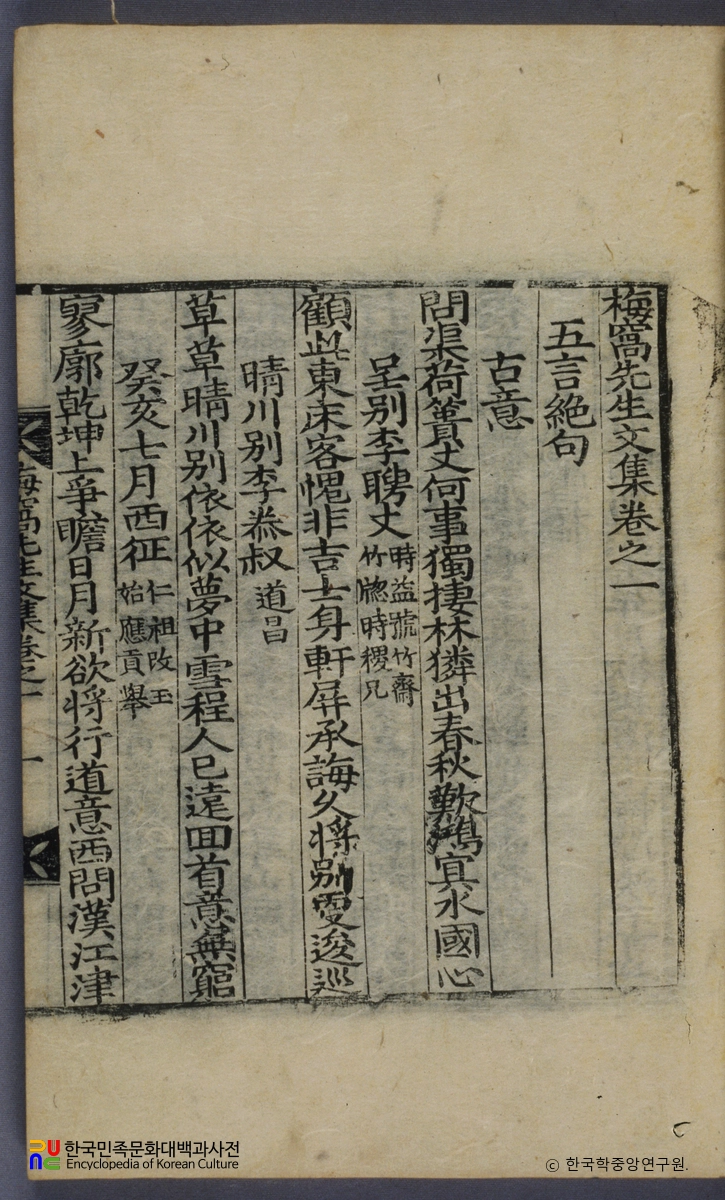 梅窩先生文集卷之一
五言絶句
古意
問渠荷蕢丈何事獨捿林獜出春秋歎鴻㝠水國心
呈别李聘丈 時益號竹齋
竹牕時稷兄
顧此東床客愧非吉士身軒屛承誨久將别更逡巡
晴川别李㳟叔 道昌
草草晴川别依依似夢中雪程人已遠回首意無窮
癸亥七月西征 仁祖改玉
始應貢舉
寥廓乾坤上爭瞻日月新欲將行道意西問漢江津
梅窩先生文集卷之一 一
한국민족문화대백과사전
Encyclopedia of Korean Culture
© 한국학중앙연구원.